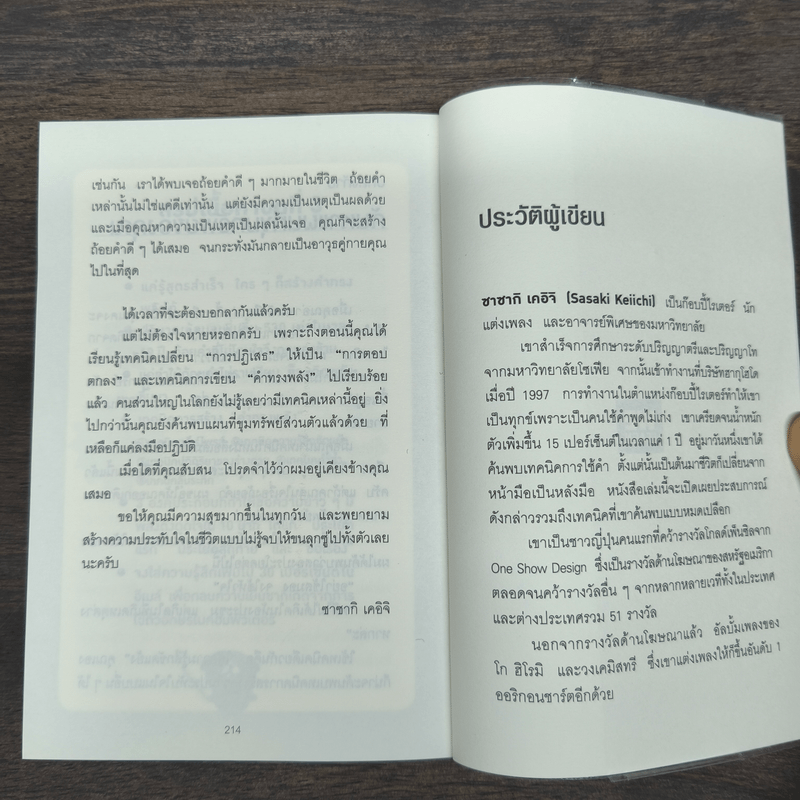 เช่นกัน เราได้พบเจอถ้อยคำดี ๆ มากมายในชีวิต ถ้อยคำ
เหล่านั้นไม่ใช่แค่ดีเท่านั้น แต่ยังมีความเป็นเหตุเป็นผลด้วย
และเมื่อคุณหาความเป็นเหตุเป็นผลนั้นเจอ คุณก็จะสร้าง
ถ้อยคำดี ๆ ได้เสมอ จนกระทั่งมันกลายเป็นอาวุธคู่กายคุณ
ไปในที่สุด
ได้เวลาที่จะต้องบอกลากันแล้วครับ
แต่ไม่ต้องใจหายหรอกครับ เพราะถึงตอนนี้คุณได้
เรียนรู้เทคนิคเปลี่ยน "การปฏิเสธ" ให้เป็น "การตอบ
ตกลง" และเทคนิคการเขียน "คำทรงพลัง" ไปเรียบร้อย
แล้ว คนส่วนใหญ่ในโลกยังไม่รู้เลยว่ามีเทคนิคเหล่านี้อยู่ ยิ่ง
ไปกว่านั้นคุณยังค้นพบแผนที่ขุมทรัพย์ส่วนตัวแล้วด้วย ที่
เหลือก็แค่ลงมือปฏิบัติ
เมื่อใดที่คุณสับสน โปรดจำไว้ว่าผมอยู่เคียงข้างคุณ
เสมอ
ขอให้คุณมีความสุขมากขึ้นในทุกวัน และพยายาม
สร้างความประทับใจในชีวิตแบบไม่รู้จบให้ขนลุกซู่ไปทั้งตัวเลย
นะครับ
ซาซากิ เคอิจิ
214
ประวัติผู้เขียน
ซาซากิ เคอิจิ (Sasaki Keiichi) เป็นก๊อบปี้ไรเตอร์ นัก
แต่งเพลง และอาจารย์พิเศษของมหาวิทยาลัย
เขาสำเร็จการศึกษาระดับปริญญาตรีและปริญญาโท
จากมหาวิทยาลัยโซเฟีย จากนั้นเข้าทำงานที่บริษัทฮากุโฮโด
เมื่อปี 1997 การทำงานในตำแหน่งก๊อบปี้ไรเตอร์ทำให้เขา
เป็นทุกข์เพราะเป็นคนใช้คำพูดไม่เก่ง เขาเครียดจนน้ำหนัก
ตัวเพิ่มขึ้น 15 เปอร์เซ็นต์ในเวลาแค่ 1 ปี อยู่มาวันหนึ่งเขาได้
ค้นพบเทคนิคการใช้คำ ตั้งแต่นั้นเป็นต้นมาชีวิตก็เปลี่ยนจาก
หน้ามือเป็นหลังมือ หนังสือเล่มนี้จะเปิดเผยประสบการณ์
ดังกล่าวรวมถึงเทคนิคที่เขาค้นพบแบบหมดเปลือก
เขาเป็นชาวญี่ปุ่นคนแรกที่คว้ารางวัลโกลด์เพ็นซิลจาก
One Show Design ซึ่งเป็นรางวัลด้านโฆษณาของสหรัฐอเมริกา
ตลอดจนคว้ารางวัลอื่น ๆ จากหลากหลายเวทีทั้งในประเทศ
และต่างประเทศรวม 51 รางวัล
นอกจากรางวัลด้านโฆษณาแล้ว อัลบั้มเพลงของ
โก ฮิโรมิ และวงเคมิสทรี ซึ่งเขาแต่งเพลงให้ก็ขึ้นอันดับ 1
ออริกอนชาร์ตอีกด้วย